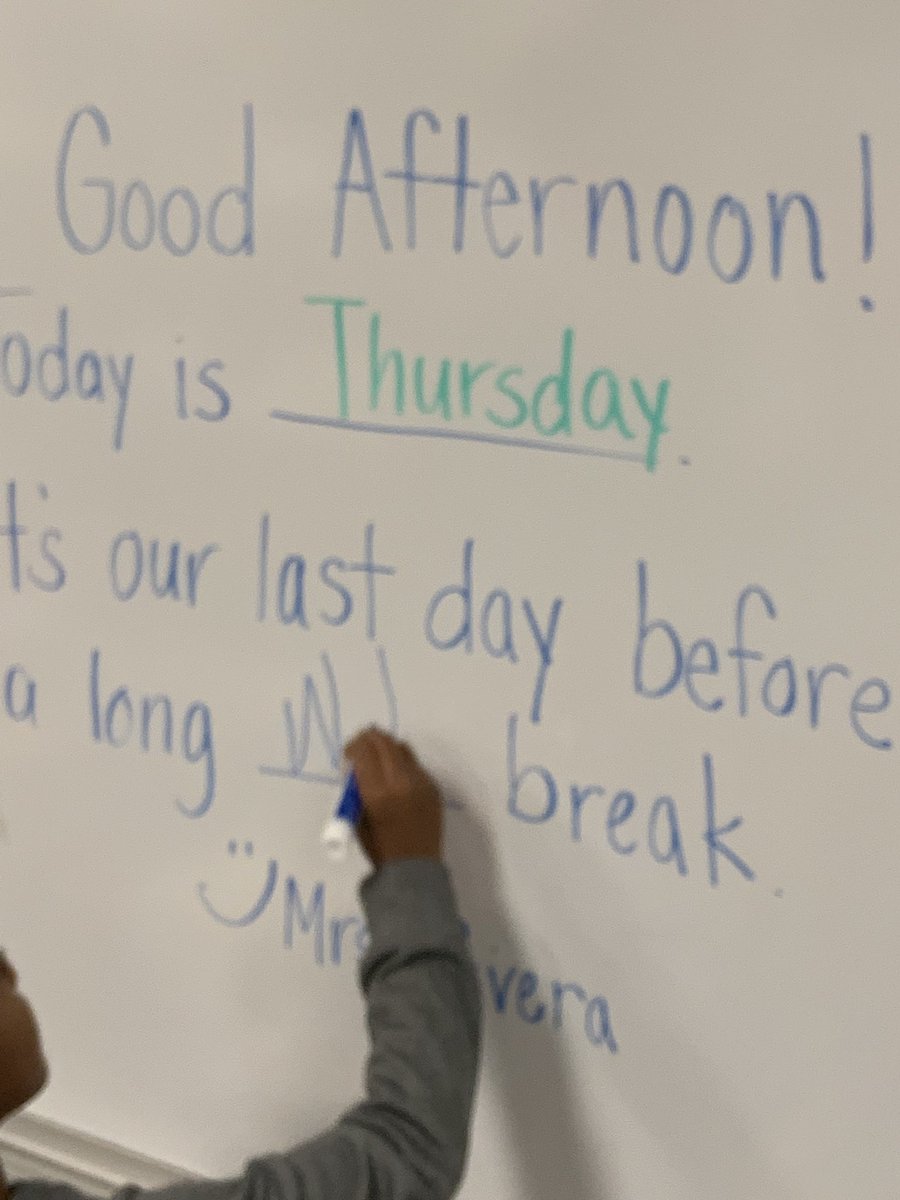 Good Afternoon!
oday is Thursday.
t's our last day before
a long W break.
Mr vera